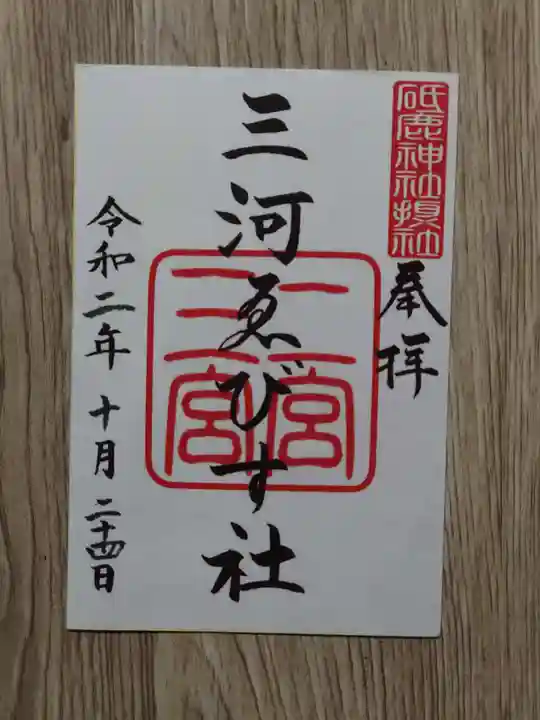 砥鹿神社摂社
奉拝
三河ゑびす社
一宮
二宮
三宮
令和二年十月二十四日